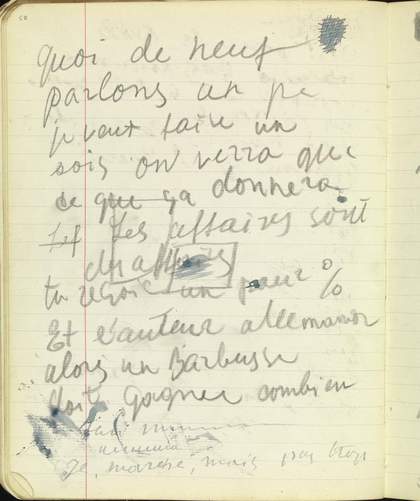 quoi de neuf
parlons un pe
je veux faire un
sois on verra que
ce que ça donnera
Les affaires sont
des affaires
tu reçois un pour %
Et l'auteur allemand
alors un Barbusse
doit gagner combien
Je, marche, mais pas trop